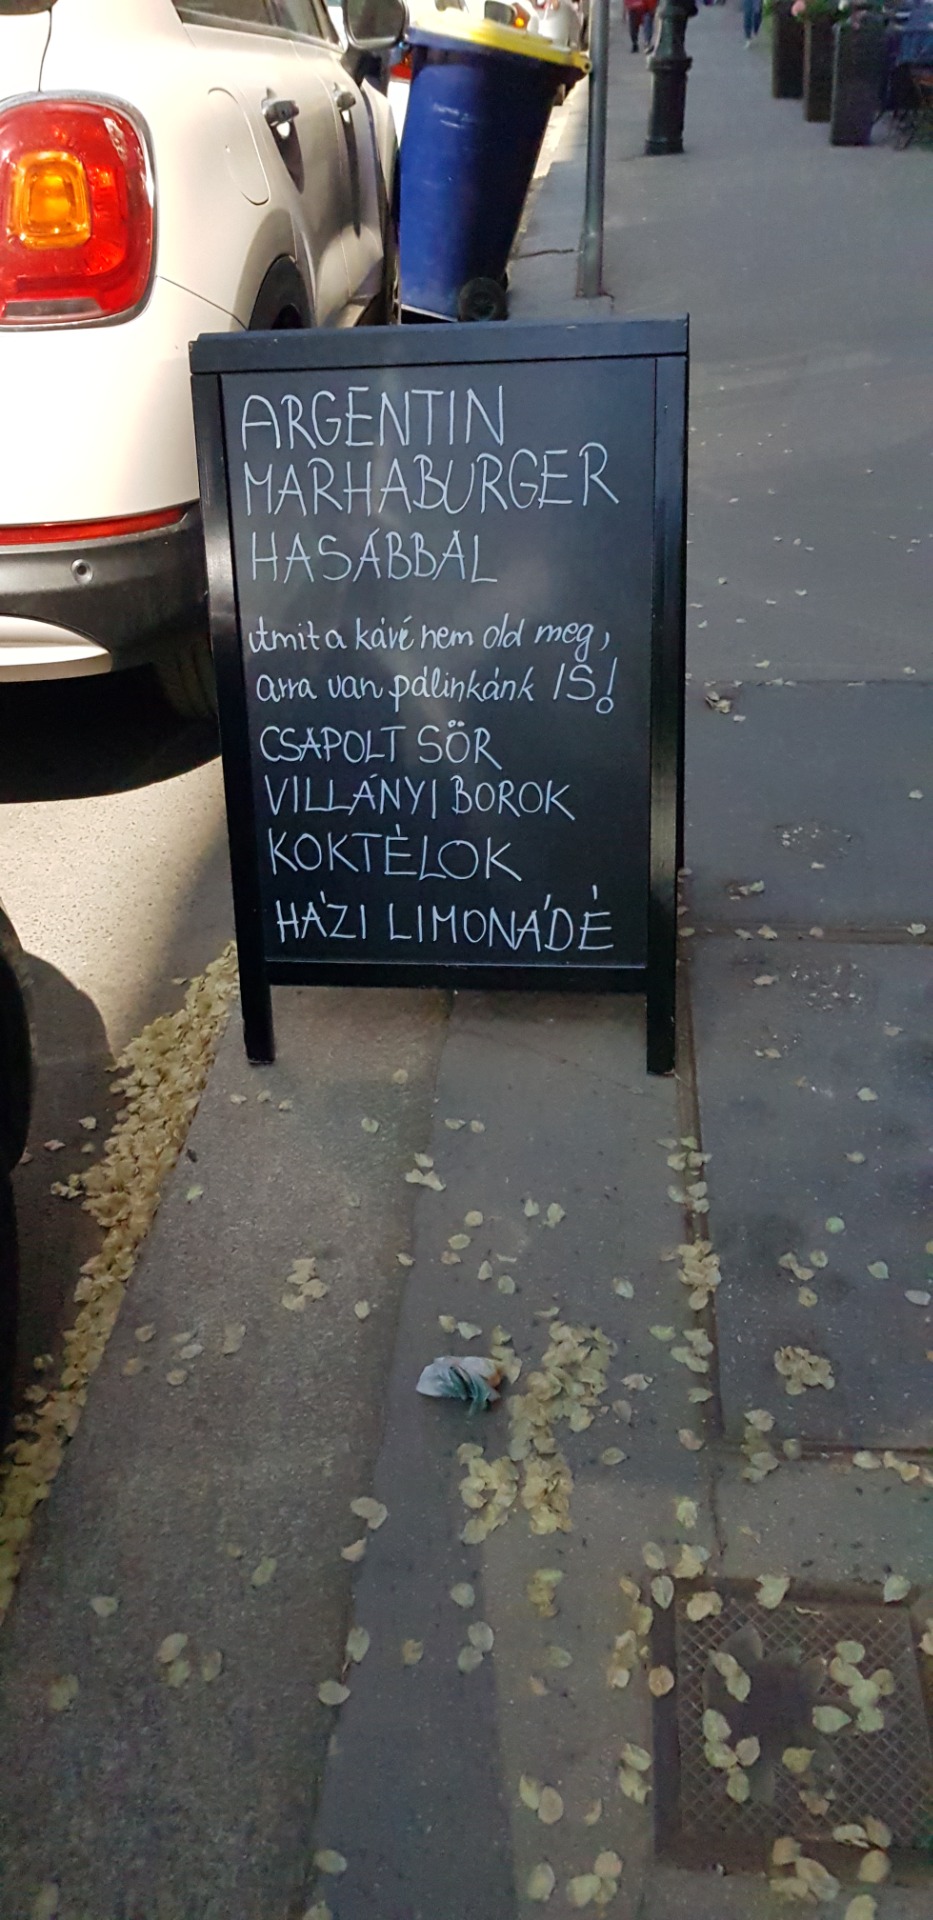 ARGENTIN
MARHABURGER
HASÁBBAL
Amit a kávé nem old meg,
arra van pálinkánk IS!
CSAPOLT SÖR
VILLÁNYI BOROK
KOKTÉLOK
HÁZI LIMONÁDÉ